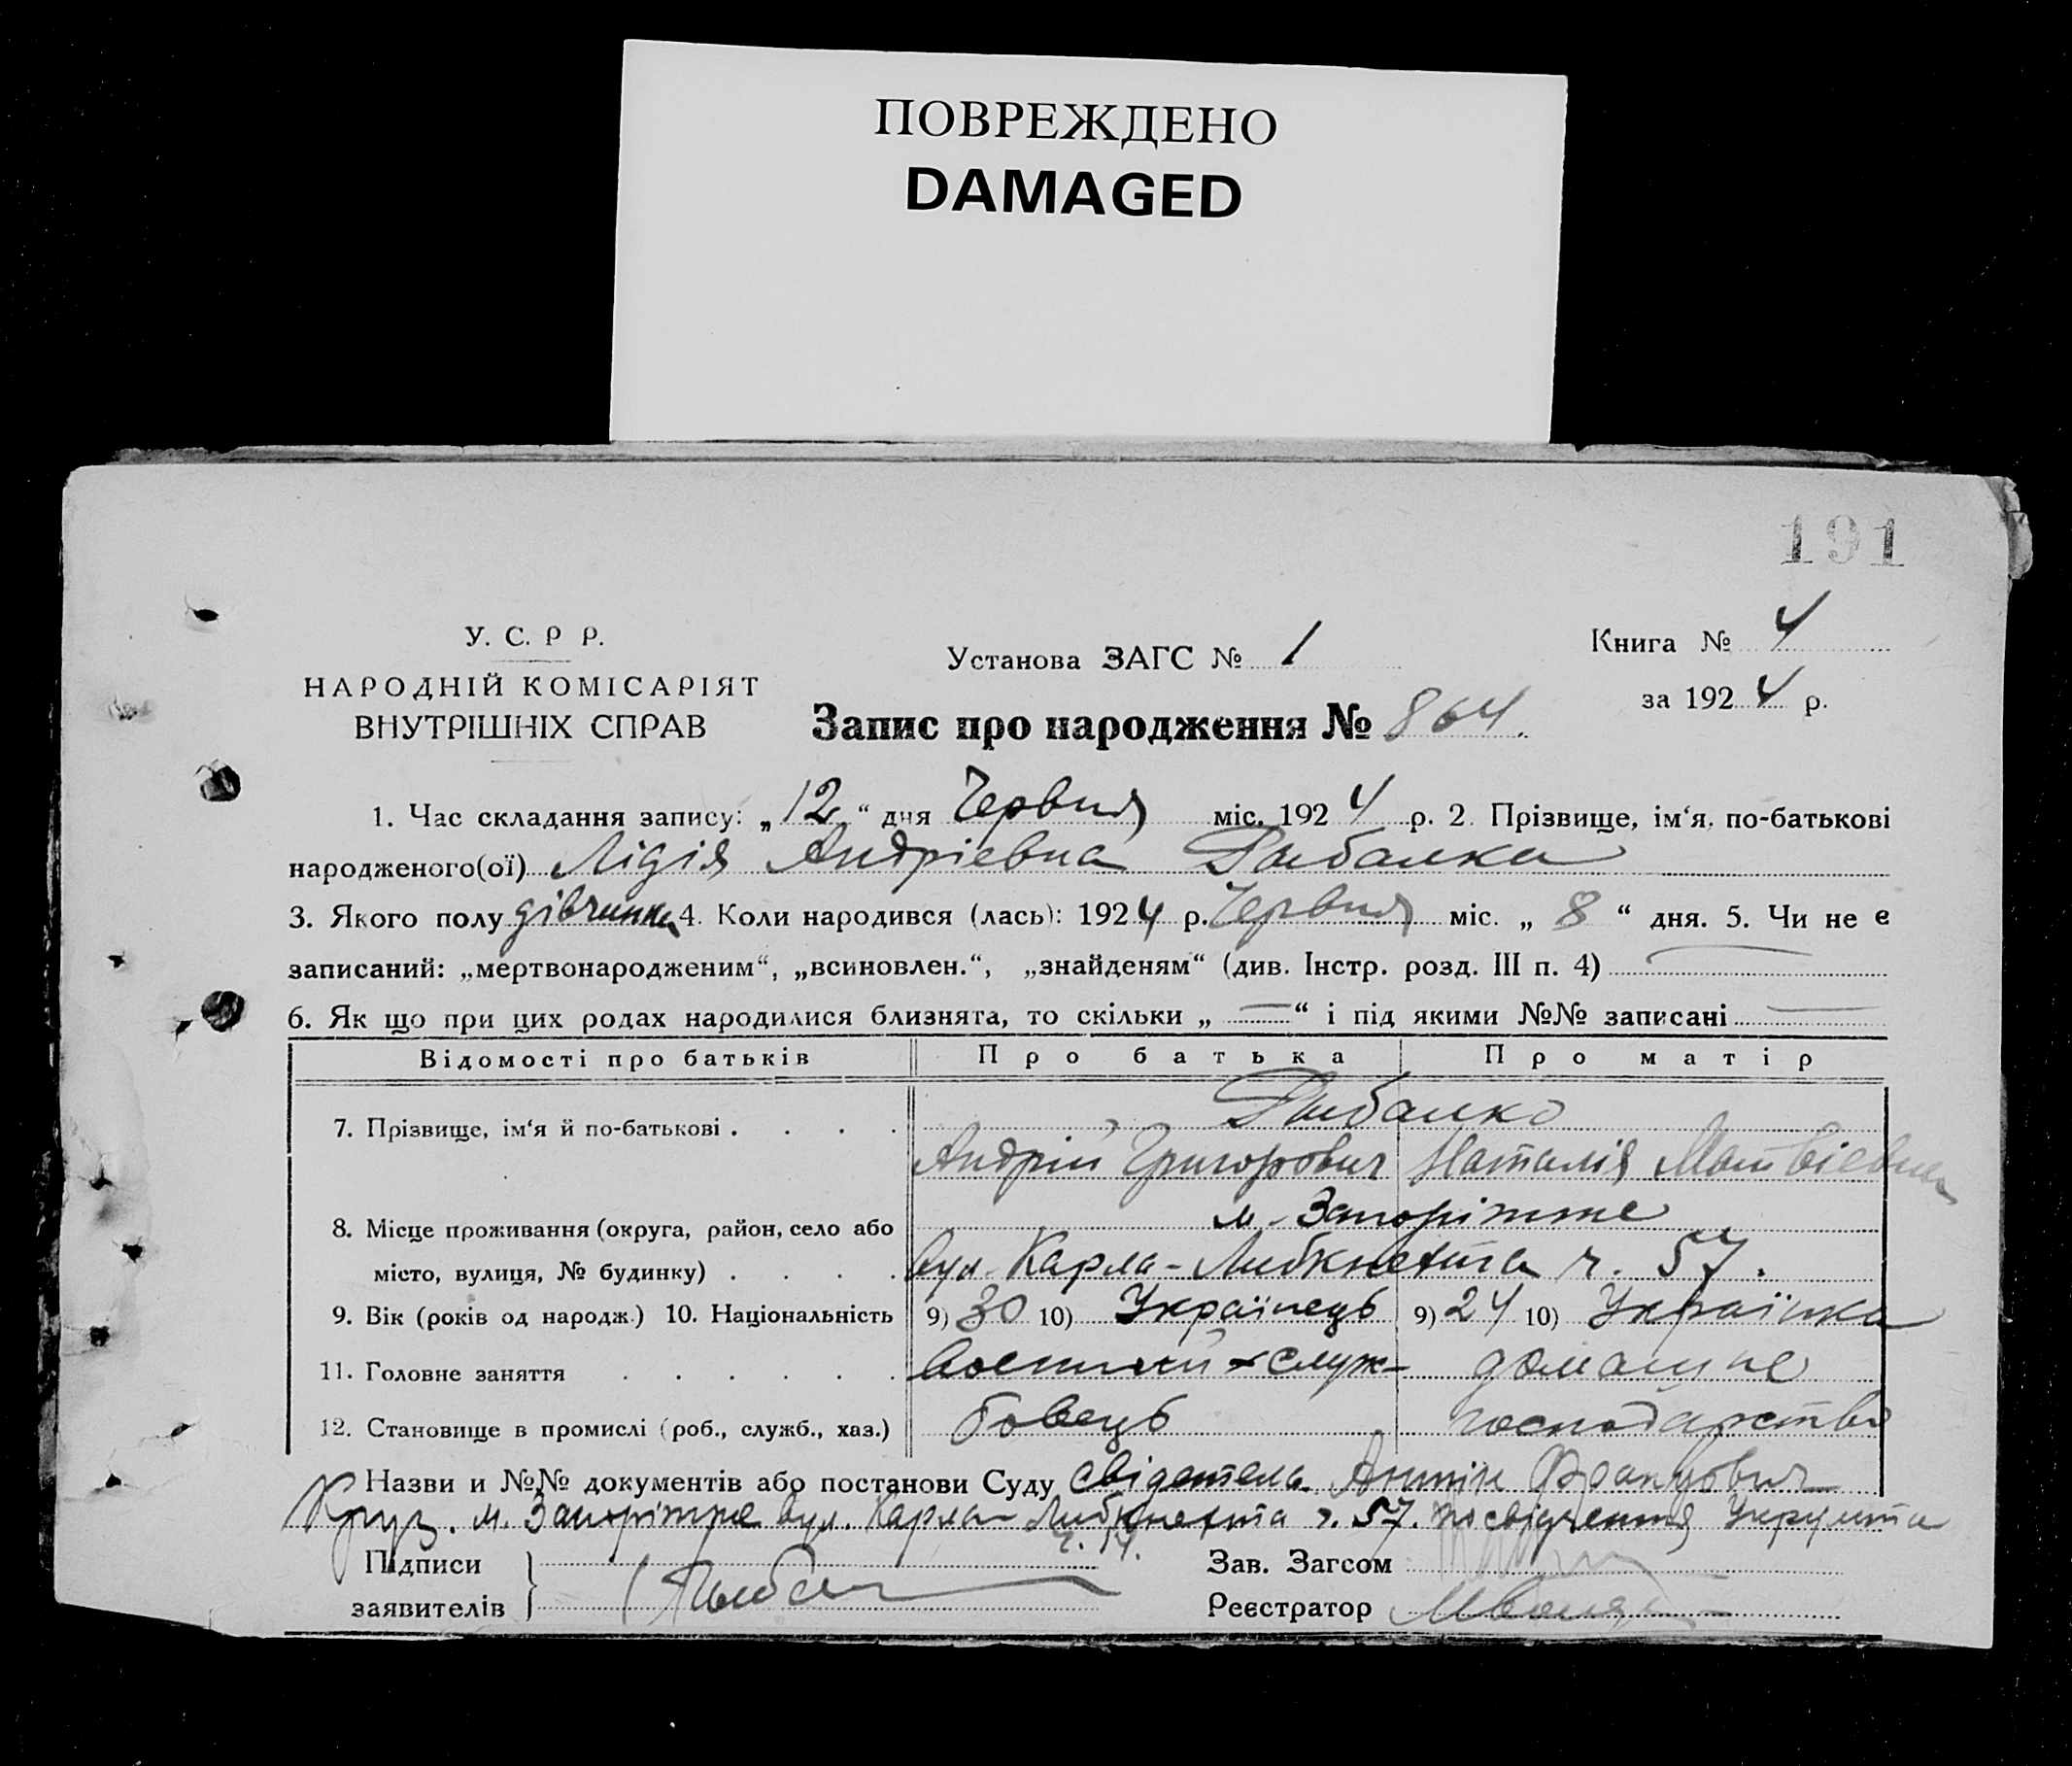 ПОВРЕЖДЕНО
DAMAGED
191
У. С. Р Р.
НАРОДНІЙ КОМІСАРІЯТ
ВНУТРІШНІХ СПРАВ
Установа ЗАГС № 1
Книга № 4
за 1924 р.
Запис про народження № 864.
1. Час складання запису: „12“ дня Червня міс. 1924 р. 2. Прізвище, ім‘я, по-батькові
народженого(ої) Лідія Андріевна Рыбалка
3. Якого полу дівчинка 4. Коли народився (лась): 1924 р. Червня міс. „8“ дня. 5. Чи не є
записаний: „мертвонародженим“, „всиновлен.“, „знайденям“ (див. Інстр. розд. III п. 4)
6. Як що при цих родах народилися близнята, то скільки „—“ і під якими №№ записані —
Відомості про батьків Про батька Про матір
Рыбалко
7. Прізвище, ім‘я й по-батькові
Андрій Григорович Наталія Матвіевна
м. Запоріжже
8. Місце проживання (округа, район, село або
місто, вулиця, № будинку) вул. Карла-Либкнехта ч. 57.
9. Вік (років од народж.) 10. Національність 9) 30 10) Українець 9) 24 10) Українка
11. Головне заняття служ- домашне
12. Становище в промислі (роб., служб., хаз.) бовець господарство
Назви и №№ документів або постанови Суду свідетель Антін Францович
Круз. м. Запоріжже вул. Карла-Либкнехта ч. 57. посвідчення
Підписи
заявителів
Зав. Загсом
Реєстратор